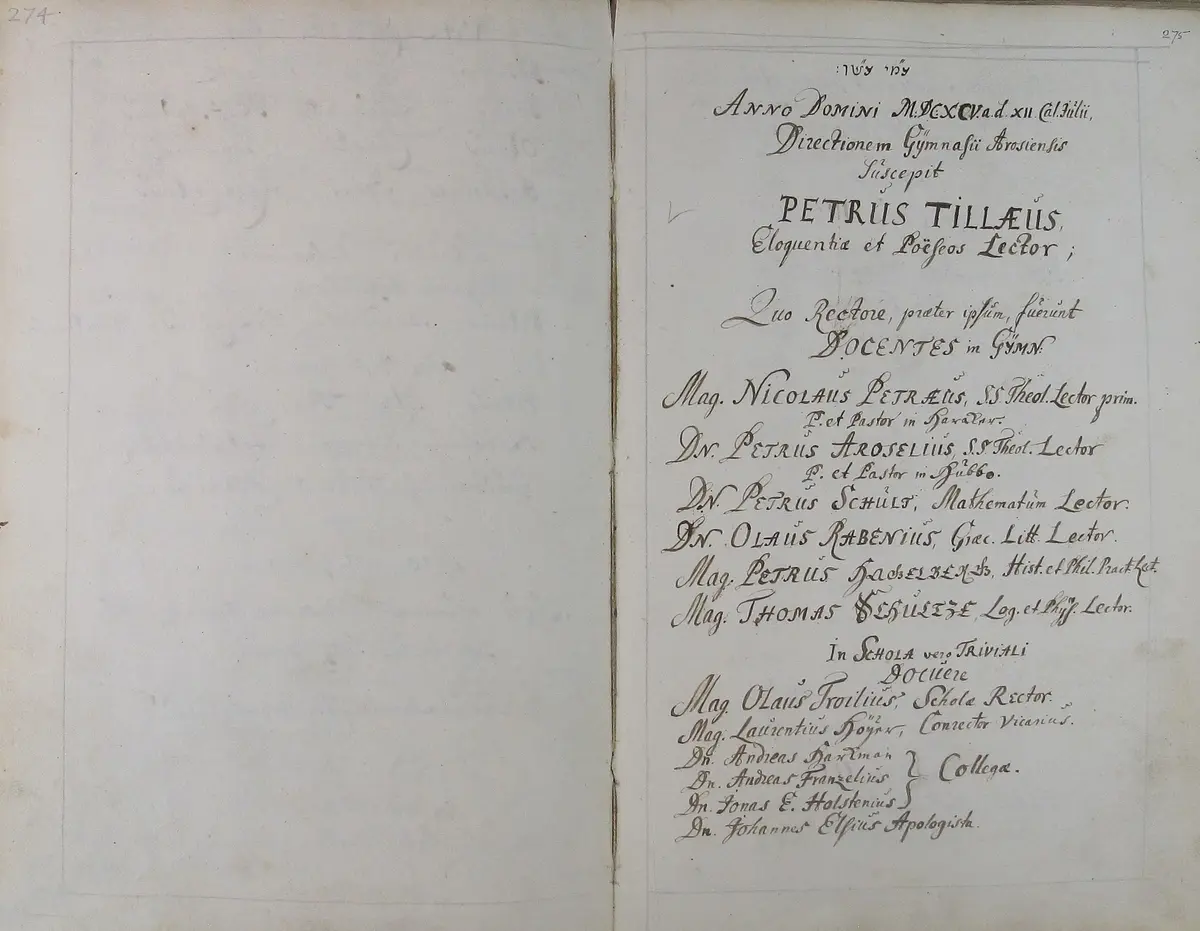 274
275
ANNO DOMINI M.DCXCV. a.d. XII Cal. Julii,
Directionem Gÿmnasii Arosiensis
Suscepit
PETRUS TILLÆUS,
Eloquentiæ et Poëseos Lector;
Quo Rectore, præter ipsum, fuerunt
DOCENTES in GŸMN:
Mag. NICOLAUS PETRÆUS, S.S. Theol. Lector prim.
P. et Pastor in Haraker.
DN. PETRUS AROSELIUS, S.S. Theol. Lector
P. et Pastor in Hubbo.
DN. PETRUS SCHULT, Mathematum Lector.
DN. OLAUS RABENIUS, Græc. Litt. Lector.
Mag. PETRUS HAGELBERG, Hist. et Phil. Pract. Lect.
Mag. THOMAS SCHULTZE, Log. et Phÿs. Lector.
In SCHOLA vero TRIVIALI
Docuere
Mag. Olaus Troilius, Scholæ Rector.
Mag. Laurentius Hoÿer, Conrector Vicarius.
Dn. Andreas Harkman
Dn. Andreas Franzelius } Collegæ.
Dn. Jonas E. Holstenius
Dn. Johannes Elfius Apologista.